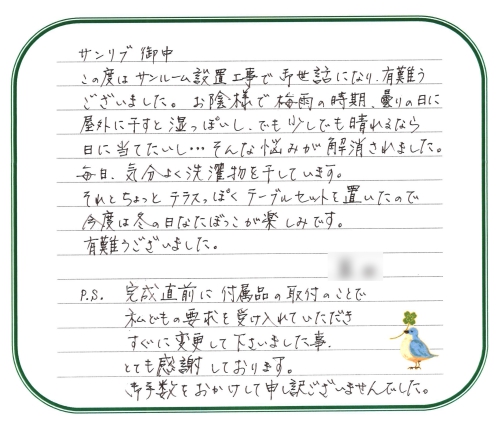 サンリブ御中
この度はサンルーム設置工事でお世話になり、有難う
ございました。お陰様で梅雨の時期、曇りの日に
屋外に干すと湿っぽいし、でも少しでも晴れるなら
日に当てたいし…そんな悩みが解消されました。
毎日、気分よく洗濯物を干しています。
それとちょっとテラスっぽくテーブルセットを置いたので
今度は冬の日なたぼっこが楽しみです。
有難うございました。
P.S. 完成直前に付属品の取付のことで
私どもの要求を受け入れていただき
すぐに変更して下さいました事、
とても感謝しております。
お手数をおかけして申し訳ございませんでした。